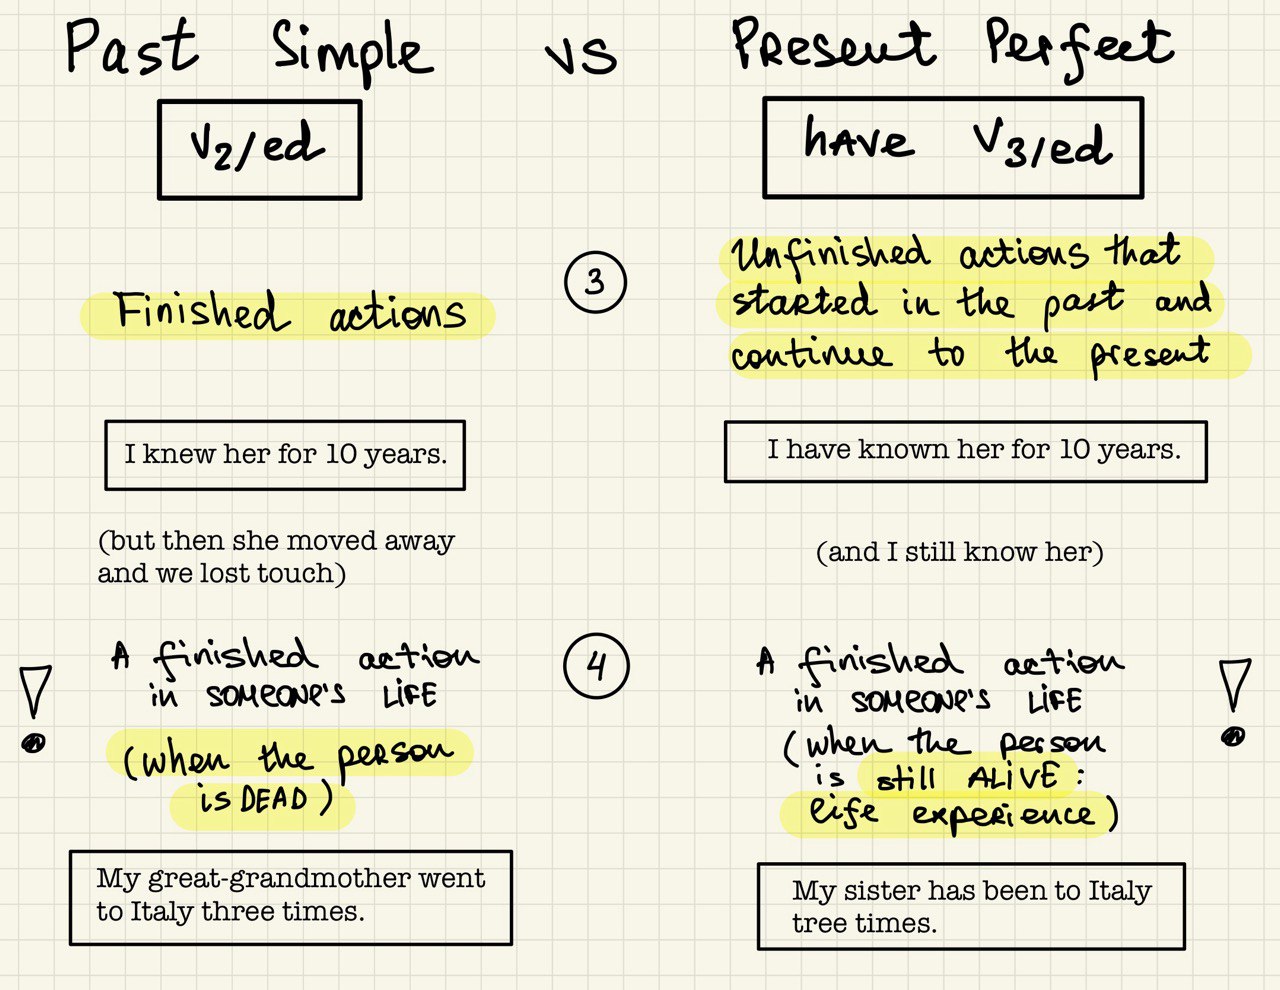 Past Simple vs Present Perfect
V2/ed
have V3/ed
3
Finished actions
Unfinished actions that
started in the past and
continue to the present
I knew her for 10 years.
I have known her for 10 years.
(but then she moved away
and we lost touch)
(and I still know her)
4
!
A finished action
in someone's life
(when the person
is DEAD)
A finished action
in someone's life
(when the person
is still ALIVE:
life experience)
!
My great-grandmother went
to Italy three times.
My sister has been to Italy
tree times.